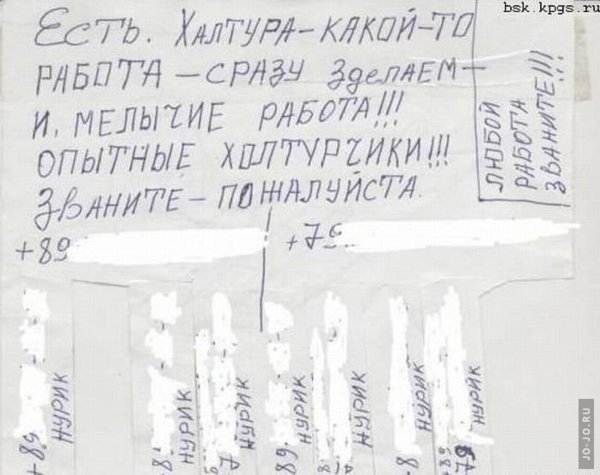 bsk.kpgs.ru
Есть. Халтура-какой-то
работа - сразу зделаем-
и, мелычие работа!!!
опытные холтурчики!!!
Званите - пожалуйста.
любой
работа
званите!!!
+89
+79
+89
Нурик
Нурик
Нурик
89
Нурик
Нурик
Нурик
Нурик
JO-JO.RU